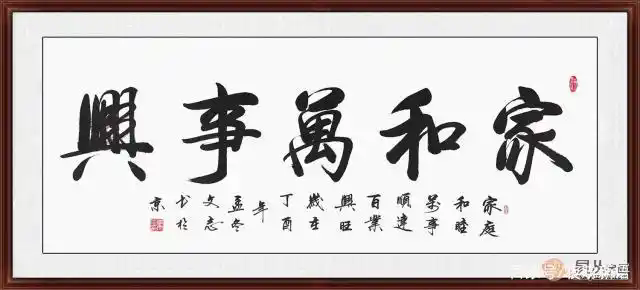 家和萬事興
家庭
和睦
萬事
順達
百業
興旺
歲在
丁酉
年
孟冬
文志
书於
京